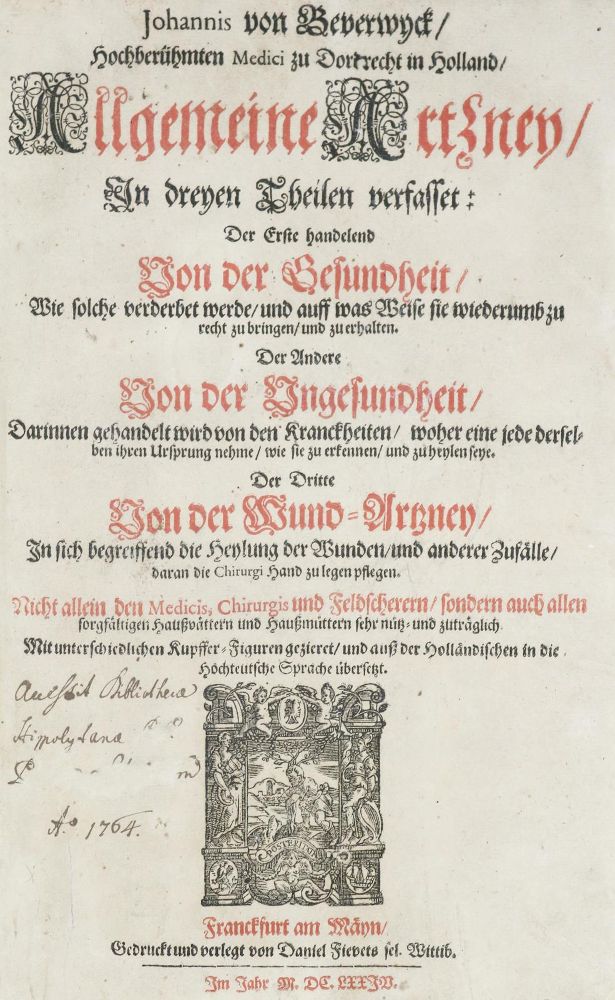 Johannis von Beverwyck/
Hochberühmten Medici zu Dordrecht in Holland/
Allgemeine Artzney/
In dreyen Theilen verfasset:
Der Erste handelend
Von der Gesundheit/
Wie solche verderbet werde/ und auff was Weise sie wiederumb zu
recht zu bringen/ und zu erhalten.
Der Andere
Von der Ungesundheit/
Darinnen gehandelt wird von den Kranckheiten/ woher eine jede dersel-
ben ihren Ursprung nehme/ wie sie zu erkennen/ und zu heylen seye.
Der Dritte
Von der Wund-Artzney/
In sich begreiffend die Heylung der Wunden/ und anderer Zufälle/
daran die Chirurgi Hand zu legen pflegen.
Nicht allein den Medicis, Chirurgis und Feldscherern/ sondern auch allen
sorgfältigen Haußvättern und Haußmüttern sehr nütz- und zuträglich.
Mit unterschiedlichen Kupffer-Figuren gezieret/ und auß der Holländischen in die
Hochteutsche Sprache übersetzt.
Bibliothecæ
Hippolytana
Aº 1764.
POSTERITATI
Franckfurt am Mäyn/
Gedruckt und verlegt von Daniel Fievets sel. Wittib.
Im Jahr M. DC. LXXIV.